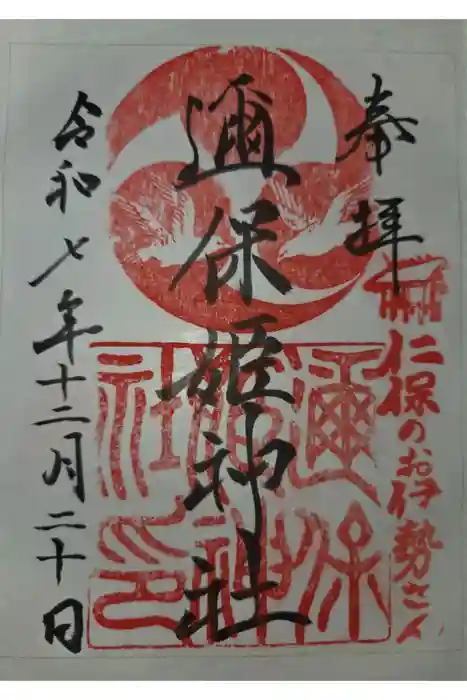 奉拝
仁保のお伊勢さん
邇保姫神社
邇保姫神社印
令和七年十二月二十日